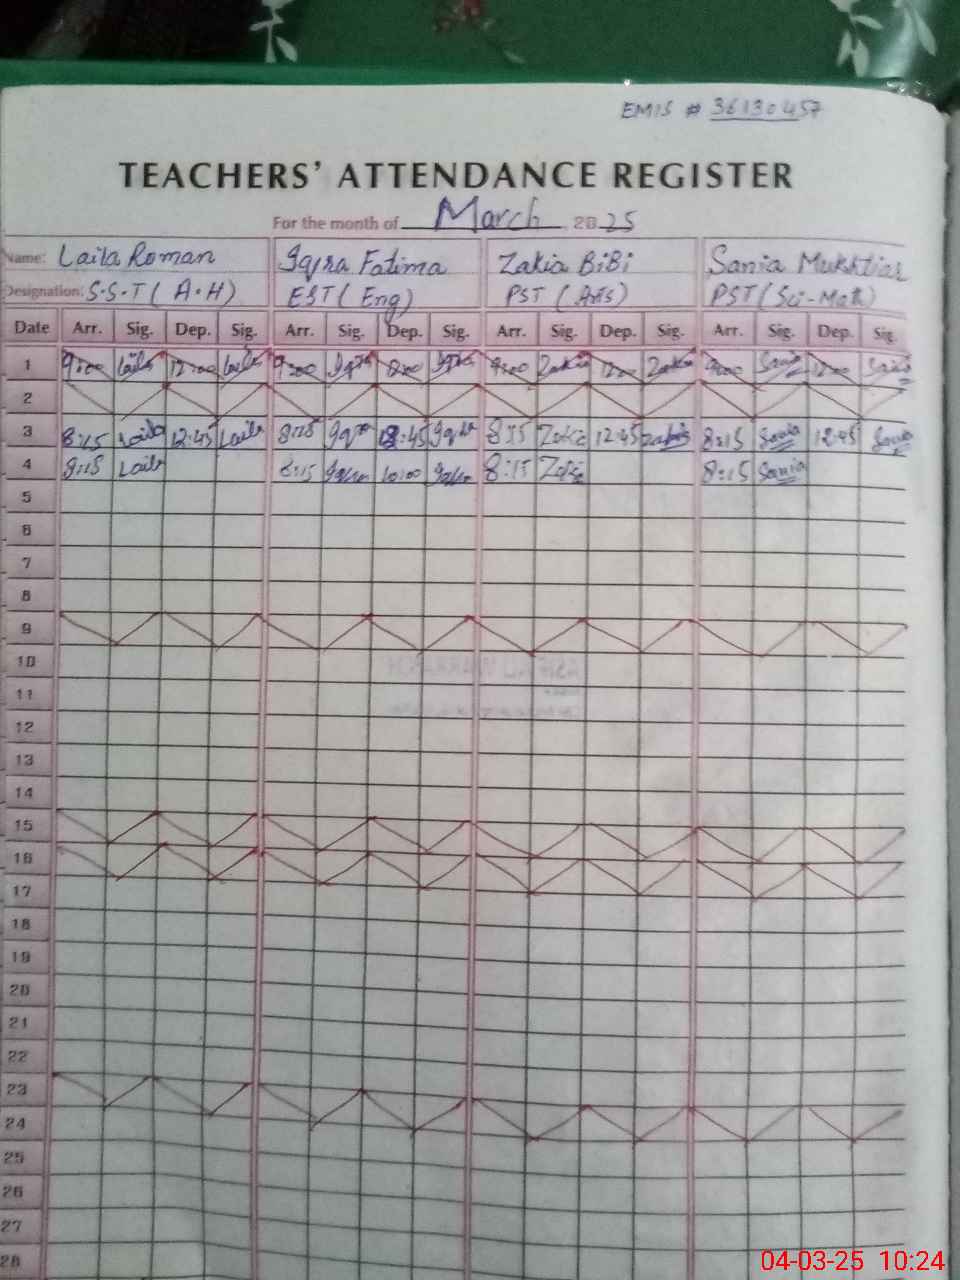 EMIS # 36130457
TEACHERS' ATTENDANCE REGISTER
For the month of March 2025
Name: Laila Roman Iqra Fatima Zakia BiBi Sania Mukhtiar
Designation: S.S.T (A.H) EST (Eng) PST (Arts) PST (Sci-Math)
Date Arr. Sig. Dep. Sig. Arr. Sig. Dep. Sig. Arr. Sig. Dep. Sig. Arr. Sig. Dep. Sig.
1 9:00 Laila 12:00 Laila 9:00 Iqra 12:00 Iqra 9:00 Zakia 12:00 Zakia 9:00 Sania 12:00 Sania
2
3 8:15 Laila 12:45 Laila 8:15 Iqra 12:45 Iqra 8:15 Zakia 12:45 Zakia 8:15 Sania 12:45 Sania
4 8:15 Laila 8:15 Iqra 10:00 Iqra 8:15 Zakia 8:15 Sania
5
6
7
8
9
10
11
12
13
14
15
16
17
18
19
20
21
22
23
24
25
26
27
28
04-03-25 10:24